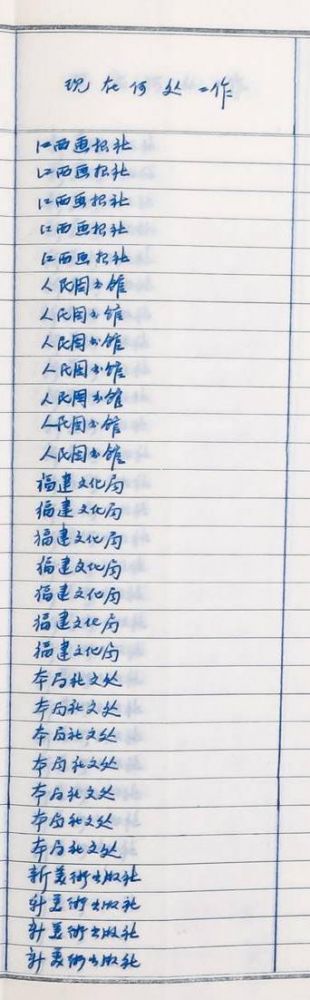 现在何处工作
江西画报社
江西画报社
江西画报社
江西画报社
江西画报社
人民图书馆
人民图书馆
人民图书馆
人民图书馆
人民图书馆
人民图书馆
人民图书馆
福建文化局
福建文化局
福建文化局
福建文化局
福建文化局
福建文化局
福建文化局
本局社文处
本局社文处
本局社文处
本局社文处
本局社文处
本局社文处
本局社文处
新美術出版社
新美術出版社
新美術出版社
新美術出版社